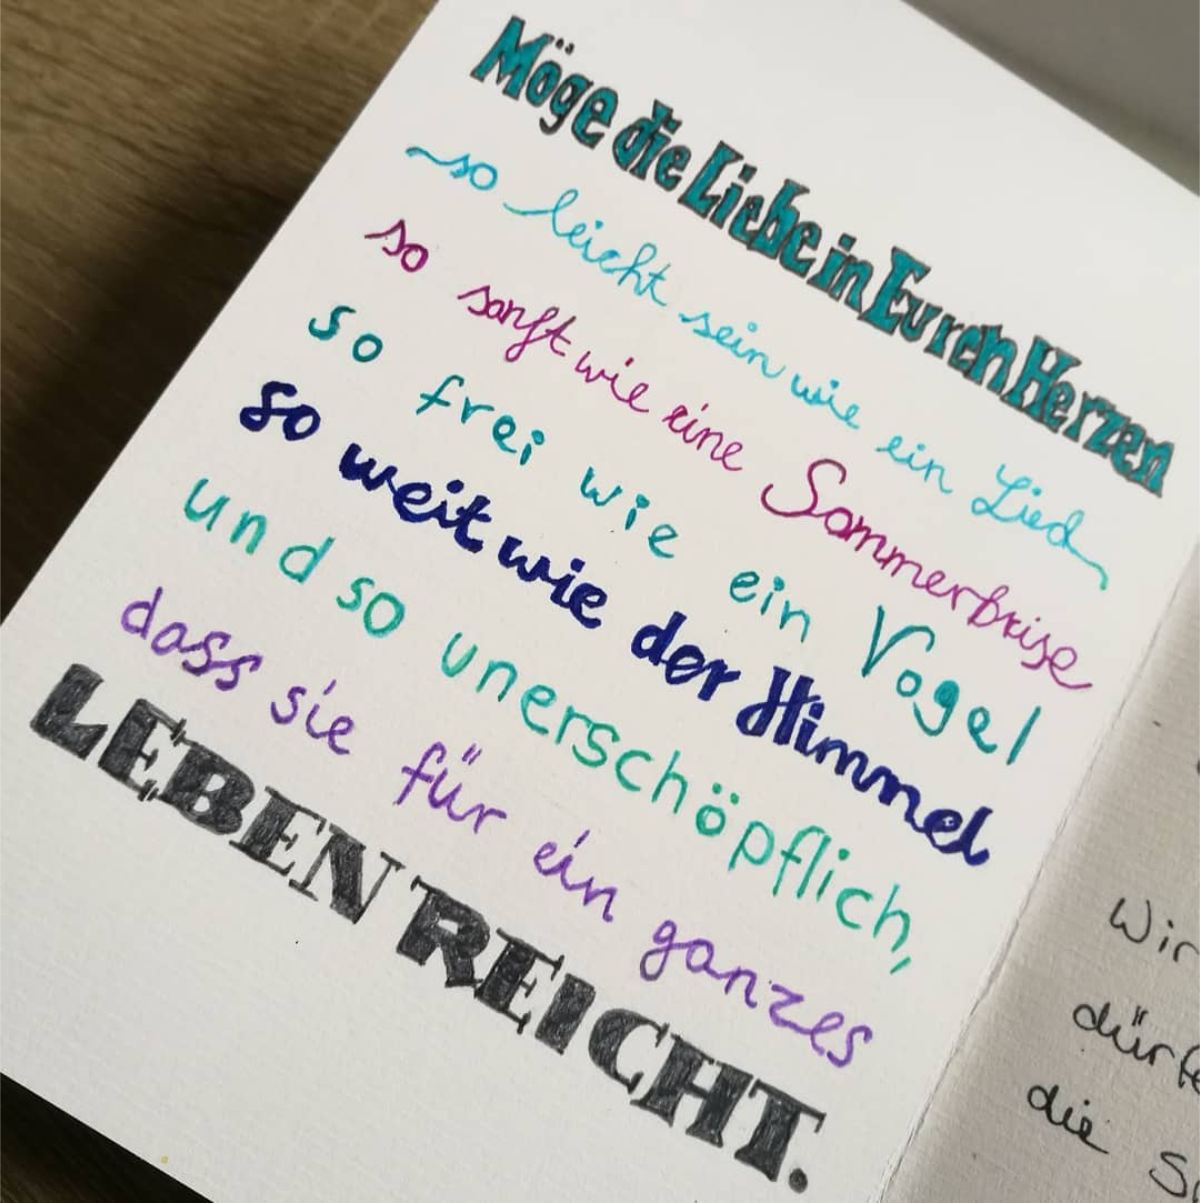 Möge die Liebe in Euren Herzen
so leicht sein wie ein Lied
so sanft wie eine Sommerbrise
so frei wie ein Vogel
so weit wie der Himmel
und so unerschöpflich,
dass sie für ein ganzes
LEBEN REICHT.
Wir
die